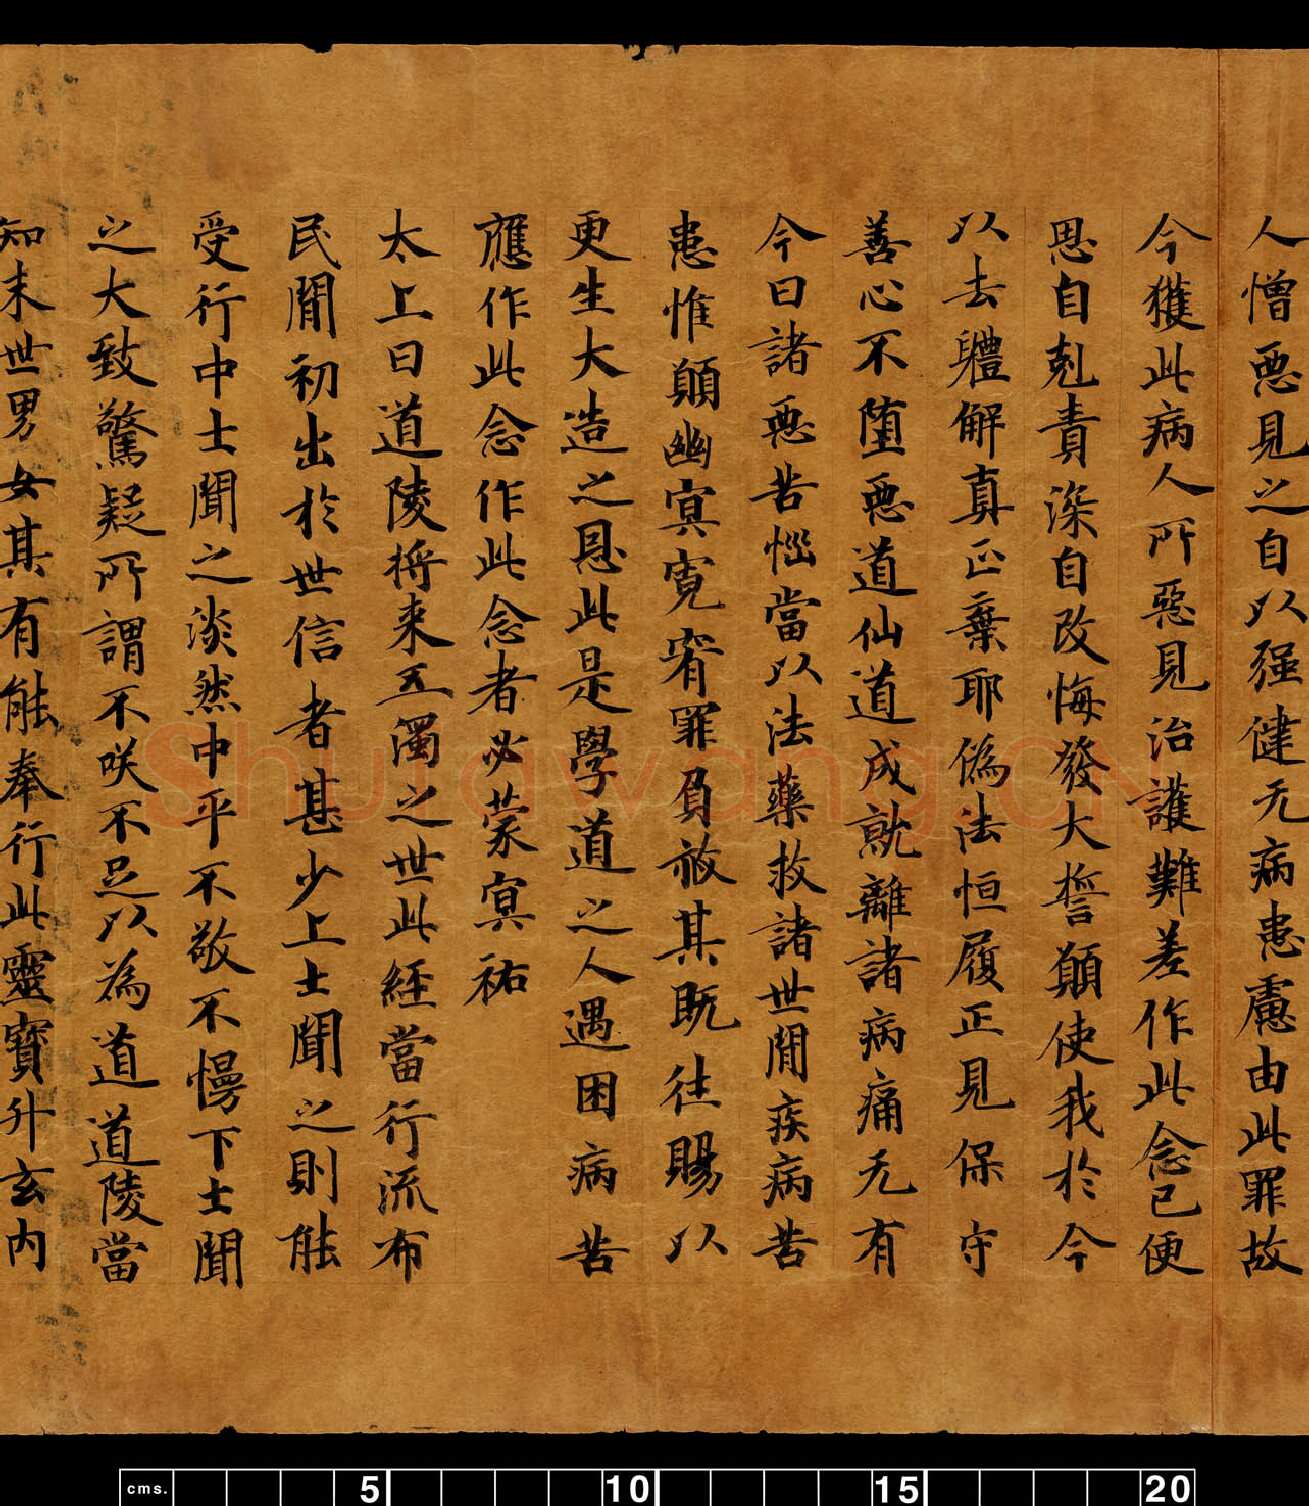 人憎惡見之自以强健无病患慮由此罪故
今獲此病人所惡見治護難差作此念已便
思自剋責深自改悔發大誓願使我於今
以去軆解真正棄耶偽法恒履正見保守
善心不墮惡道仙道成就離諸病痛无有
今日諸惡苦惱當以法藥救諸世間疾病苦
患惟願幽冥寬宥罪負赦其既往賜以
更生大造之恩此是學道之人遇困病苦
應作此念作此念者必蒙冥祐
太上曰道陵將來五濁之世此經當行流布
民間初出於世信者甚少上士聞之則能
受行中士聞之淡然中平不敬不慢下士聞
之大致驚疑所謂不咲不足以為道道陵當
知末世男女其有能奉行此靈寶升玄内
Shufawang.CN
cms. 5 10 15 20